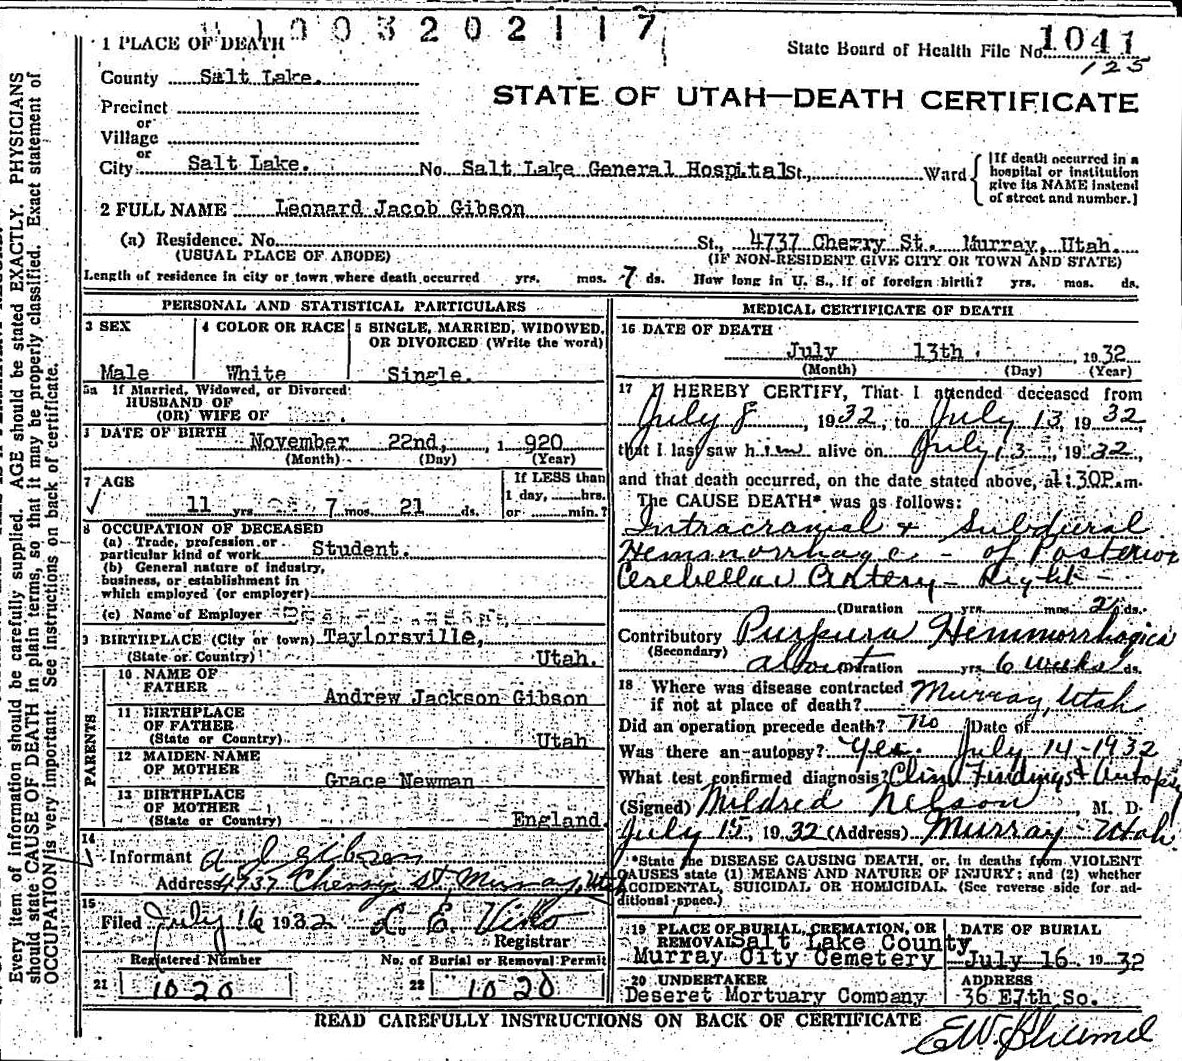 1003202117
1 PLACE OF DEATH
State Board of Health File No. 1041
125
County Salt Lake.
STATE OF UTAH—DEATH CERTIFICATE
Precinct
or
Village
or
City Salt Lake. No. Salt Lake General Hospital St., Ward
[If death occurred in a hospital or institution give its NAME instead of street and number.]
2 FULL NAME Leonard Jacob Gibson
(a) Residence. No. St., 4737 Cherry St. Murray, Utah.
(USUAL PLACE OF ABODE) (IF NON-RESIDENT GIVE CITY OR TOWN AND STATE)
Length of residence in city or town where death occurred yrs. mos. 7 ds. How long in U. S., if of foreign birth? yrs. mos. ds.
PERSONAL AND STATISTICAL PARTICULARS
3 SEX
Male
4 COLOR OR RACE
White
5 SINGLE, MARRIED, WIDOWED, OR DIVORCED (Write the word)
Single.
5a If Married, Widowed, or Divorced:
HUSBAND OF
(OR) WIFE OF
DATE OF BIRTH
November 22nd, 1920
(Month) (Day) (Year)
7 AGE
11 yrs. 7 mos. 21 ds.
If LESS than
1 day, hrs.
or min.?
8 OCCUPATION OF DECEASED
(a) Trade, profession or
particular kind of work Student.
(b) General nature of industry,
business, or establishment in
which employed (or employer)
(c) Name of Employer
9 BIRTHPLACE (City or town) Taylorsville,
(State or Country) Utah.
PARENTS
10 NAME OF
FATHER Andrew Jackson Gibson
11 BIRTHPLACE
OF FATHER
(State or Country) Utah
12 MAIDEN NAME
OF MOTHER Grace Newman
13 BIRTHPLACE
OF MOTHER
(State or Country) England.
14
Informant A J Gibson
Address 4737 Cherry St. Murray, Utah
15
Filed July 16 1932 L. E. Viko
Registrar
Registered Number No. of Burial or Removal Permit
21 1020 22 1020
MEDICAL CERTIFICATE OF DEATH
16 DATE OF DEATH
July 13th. 1932
(Month) (Day) (Year)
17 I HEREBY CERTIFY, That I attended deceased from
July 8, 1932, to July 13, 1932,
that I last saw him alive on July 13, 1932,
and that death occurred, on the date stated above, at 1:30P.m.
The CAUSE DEATH* was as follows:
Intracranial & Subdural
Hemmorrhage - of Posterior
Cerebellar Artery - Right -
(Duration yrs. mos. 2 ds.
Contributory Purpura Hemmorrhagica
(Secondary)
about (Duration yrs. 6 weeks ds.
18 Where was disease contracted
if not at place of death? Murray, Utah
Did an operation precede death? No Date of
Was there an autopsy? Yes. July 14-1932
What test confirmed diagnosis? Clin. Findings & Autopsy
(Signed) Mildred Nelson, M. D.
July 15, 1932 (Address) Murray - Utah
*State the DISEASE CAUSING DEATH, or, in deaths from VIOLENT
CAUSES state (1) MEANS AND NATURE OF INJURY; and (2) whether
ACCIDENTAL, SUICIDAL OR HOMICIDAL. (See reverse side for ad-
ditional space.)
19 PLACE OF BURIAL, CREMATION, OR
REMOVAL Salt Lake County
Murray City Cemetery
DATE OF BURIAL
July 16 1932
20 UNDERTAKER
Deseret Mortuary Company
ADDRESS
36 E7th So.
READ CAREFULLY INSTRUCTIONS ON BACK OF CERTIFICATE
Every item of information should be carefully supplied. AGE should be stated EXACTLY. PHYSICIANS
should state CAUSE OF DEATH in plain terms, so that it may be properly classified. Exact statement of
OCCUPATION is very important. See instructions on back of certificate.